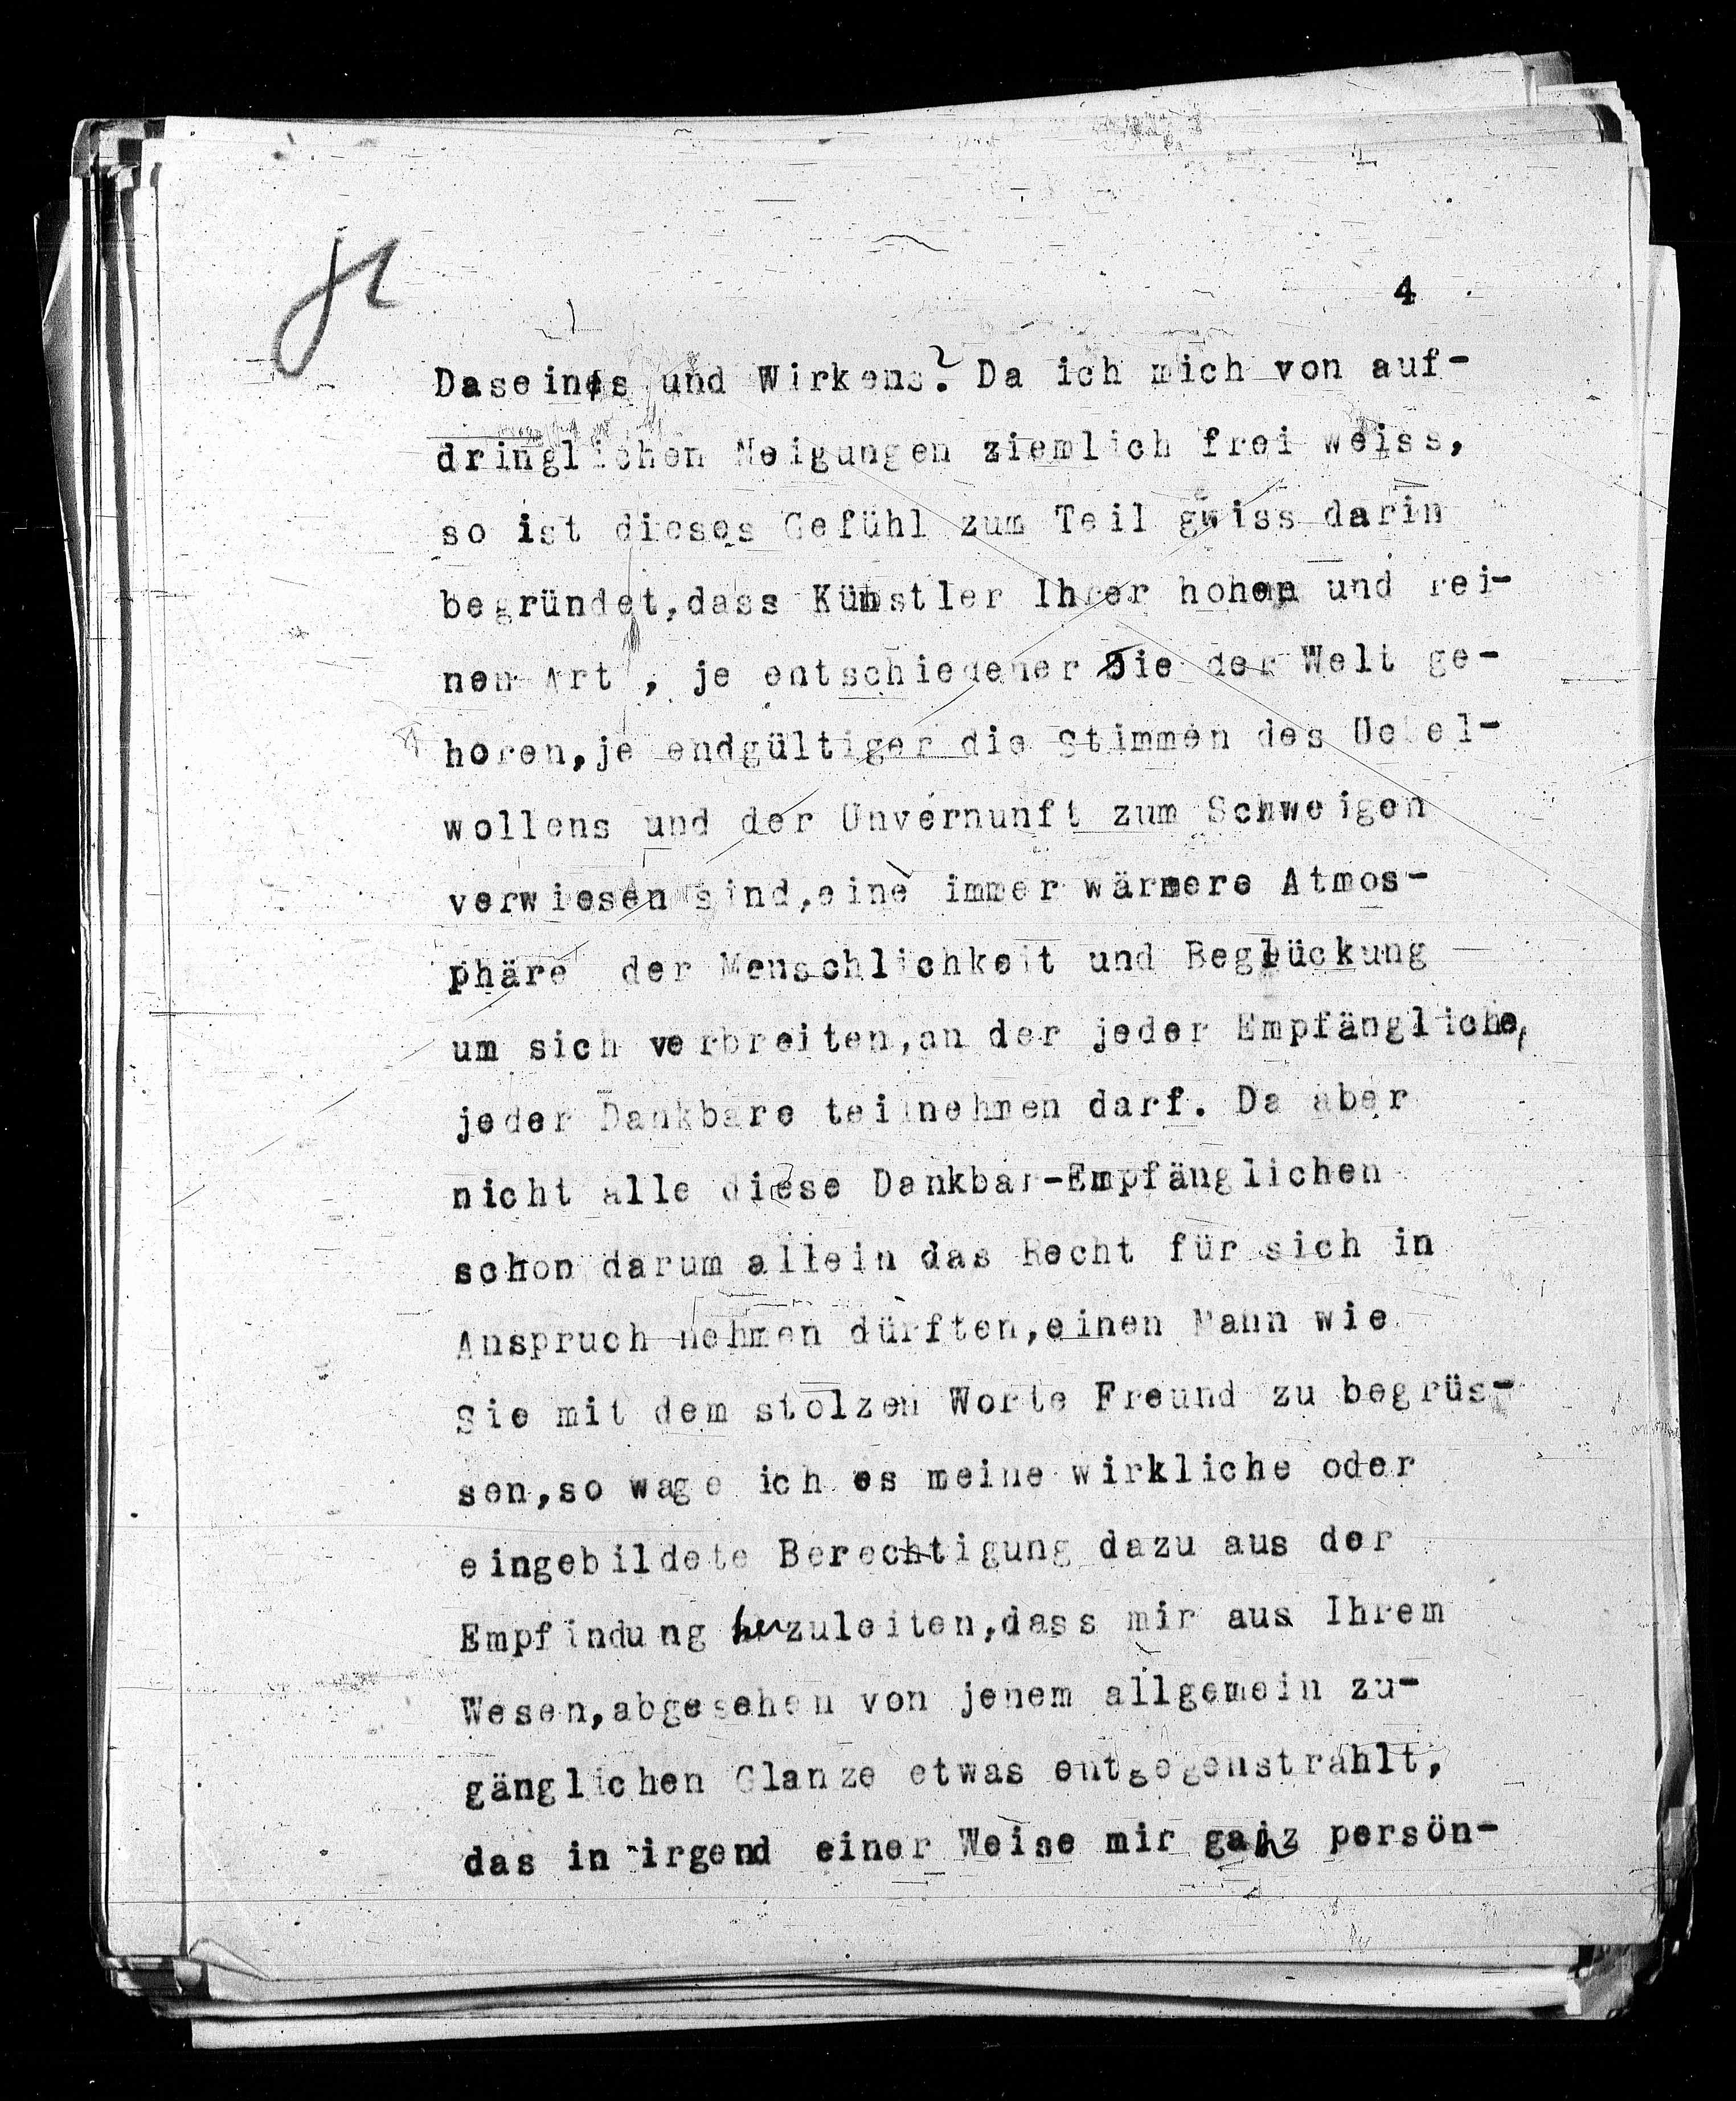 4
Daseins und Wirkens? Da ich mich von auf-
dringlichen Neigungen ziemlich frei weiss,
so ist dieses Gefühl zum Teil gwiss darin
begründet,dass Künstler Ihrer hohen und rei-
nen Art , je entschiedener Sie der Welt ge-
hören,je endgültiger die Stimmen des Uebel-
wollens und der Unvernunft zum Schweigen
verwiesen sind,eine immer wärmere Atmos-
phäre der Menschlichkeit und Beglückung
um sich verbreiten,an der jeder Empfängliche,
jeder Dankbare teilnehmen darf. Da aber
nicht alle diese Dankbar-Empfänglichen
schon darum allein das Recht für sich in
Anspruch nehmen dürften,einen Mann wie
Sie mit dem stolzen Worte Freund zu begrüs-
sen,so wage ich es meine wirkliche oder
eingebildete Berechtigung dazu aus der
Empfindung herzuleiten,dass mir aus Ihrem
Wesen,abgesehen von jenem allgemein zu-
gänglichen Glanze etwas entgegenstrahlt,
das in irgend einer Weise mir ganz persön-